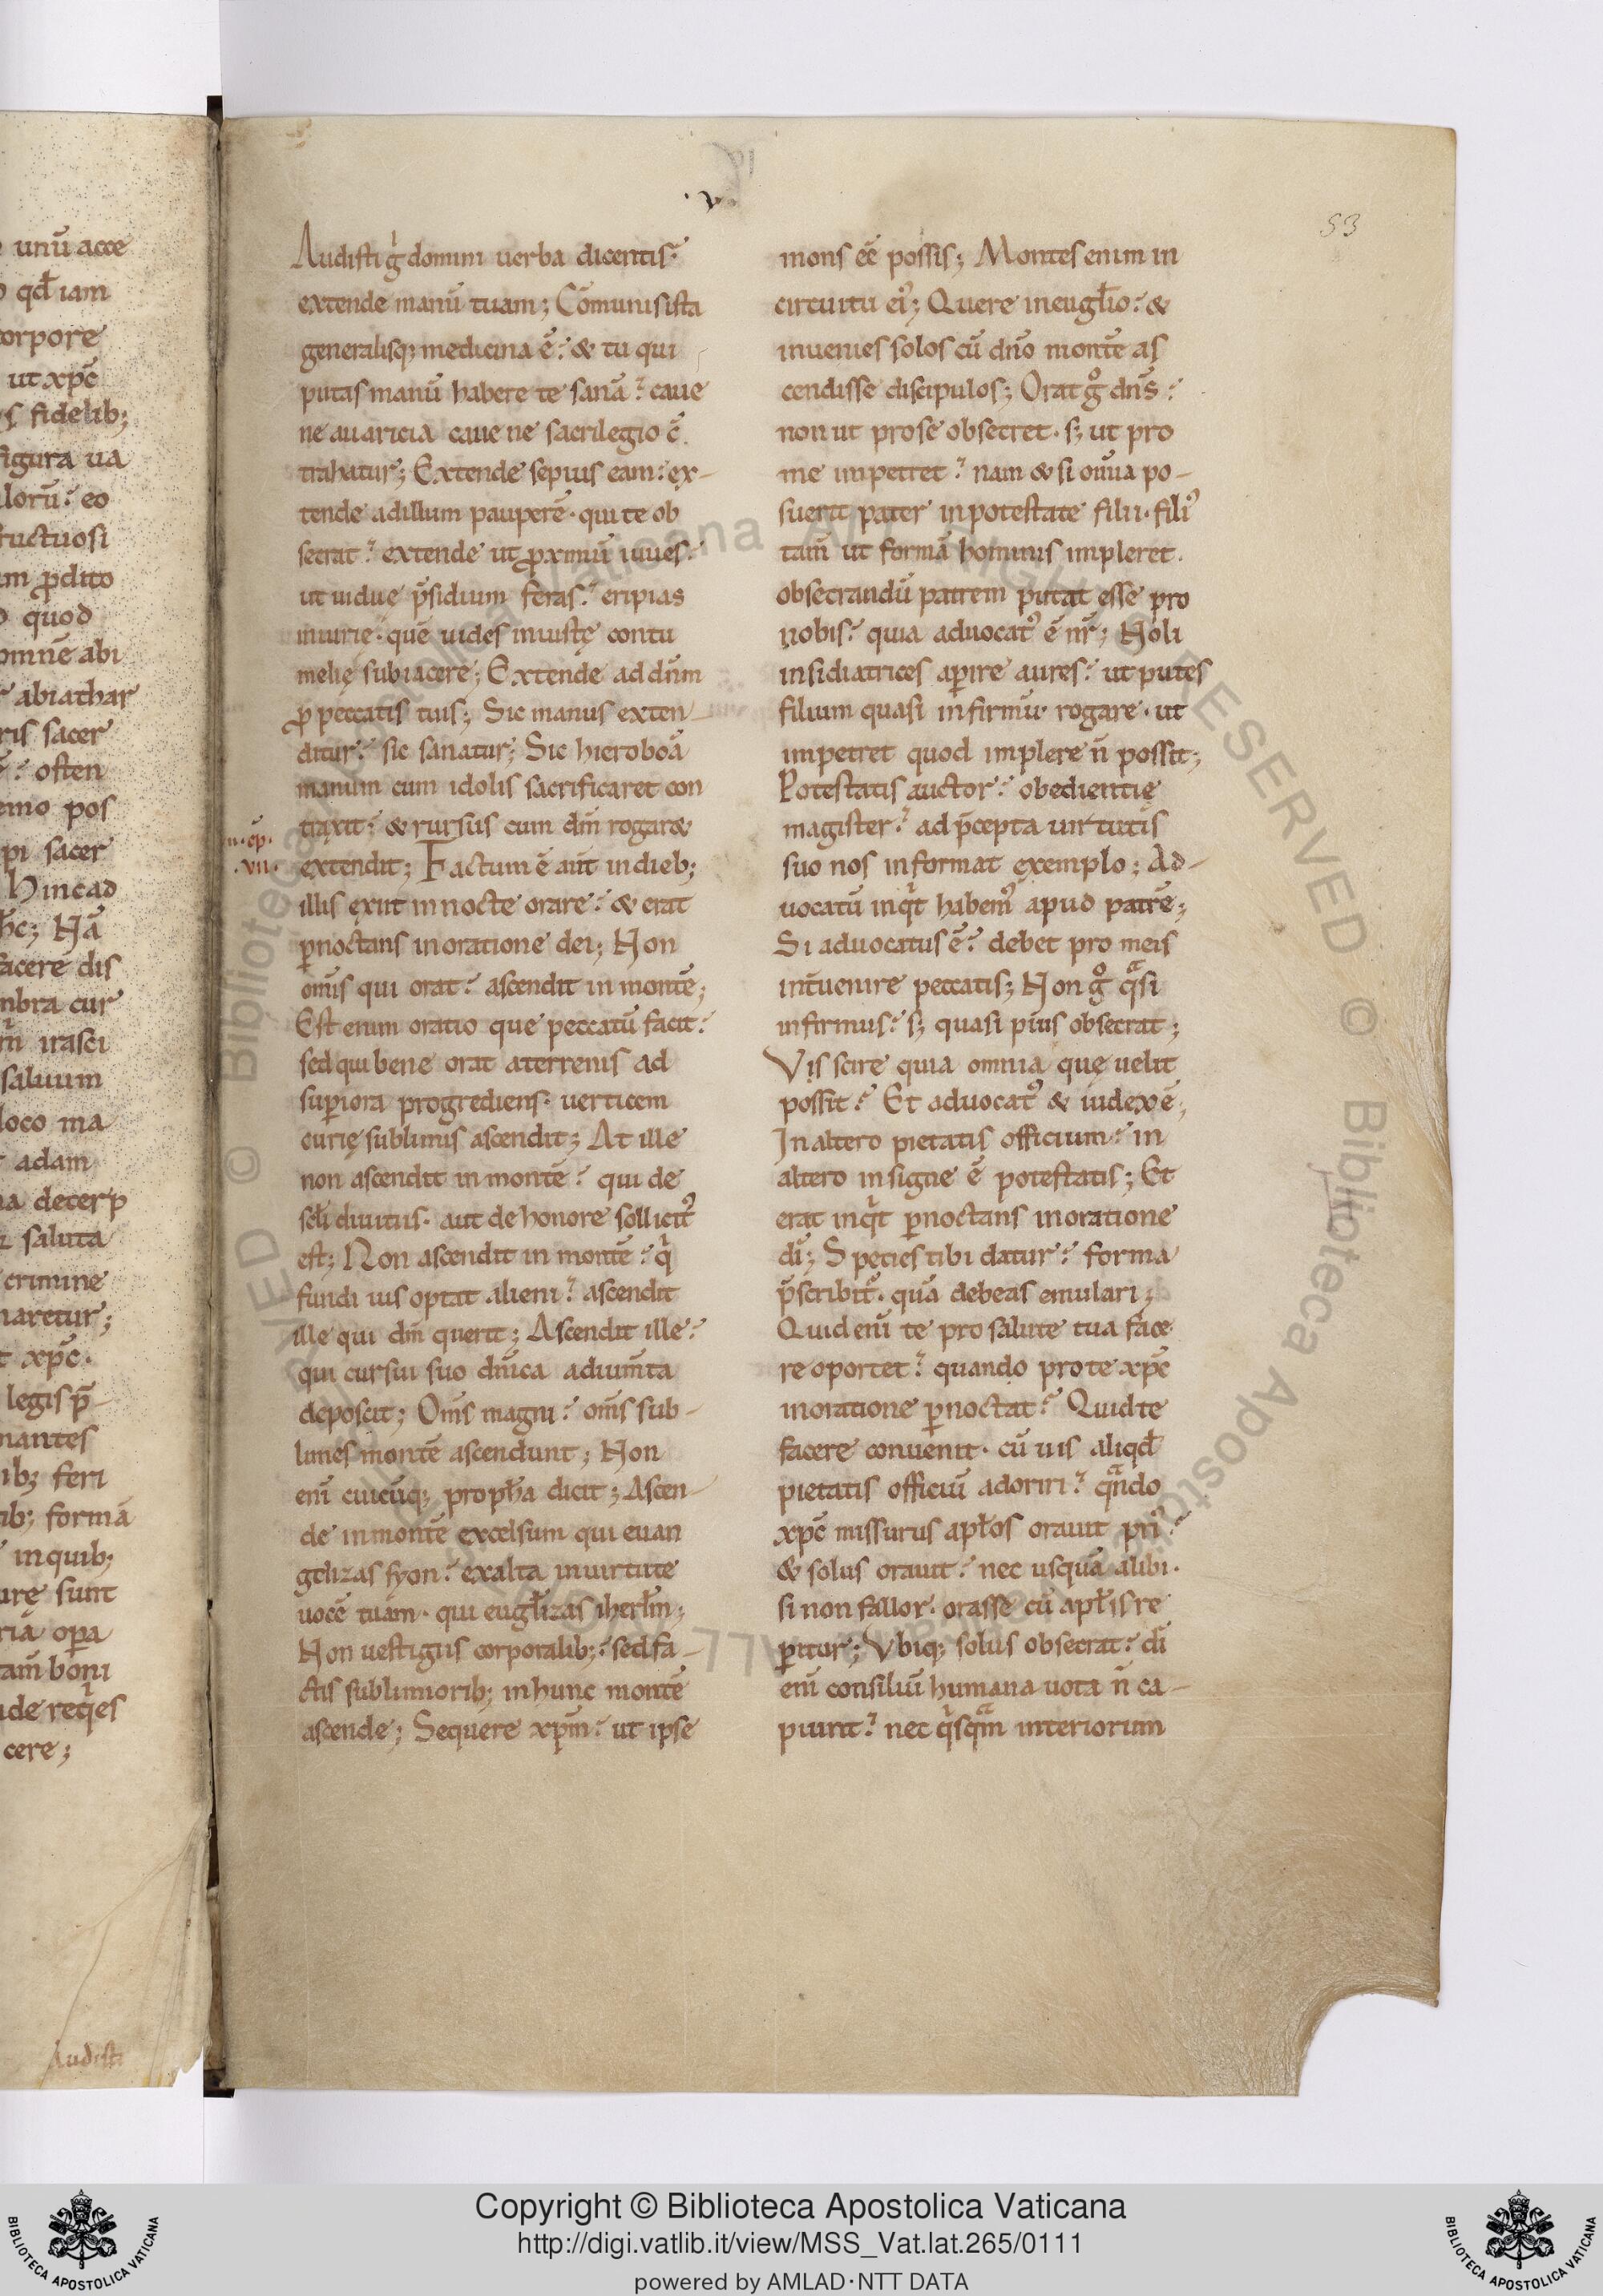 unū acce
qđ iam
corpore
ut xp̄c
fidelib;
figura ua
loru̅.᾿ eo
fructuosi
m ꝓdito
quod
omnē abi
abiathar
ris sacer
osten
emo pos
pi sacer
Hinc ad
hc; Nā
facere dis
mbra cur
irasci
saluum
loco ma
adam
a decerp
saluta
crimine
naretur;
t xp̄c.
legis p̄
nantes
ib; feri
ib; formā
in quib;
urę sunt
riā oꝑa
tam̄ boni
de reqͥes
cere;
Audisti
.v.
53
Audisti gͥ domini uerba dicentis.᾿
extende manū tuam; Cōmunis ista
generalisq; medicina ē.᾿ & tu qui
putas manū habere te sanā.᾿ caue
ne auaricia caue ne sacrilegio c̄
trahatur; Extende sepius eam.᾿ ex-
tende ad illum pauperē. qui te ob
secrat.᾿ extende ut ꝓximū iuues.᾿
ut uidue p̄sidium feras.᾿ eripias
iniurię.᾿ quē uides iniustę contu
melię subiacere; Extende ad dn̄m
ꝓ peccatis tuis; Sic manus exten-
ditur.᾿ sic sanatur; Sic hieroboā
manum cum idolis sacrificaret con
traxit.᾿ & rursus cum dm̄ rogar&
extendit; Factum ē aut̄ in dieb;
.vii.
illis exiit in nocte orare.᾿ & erat
ꝑnoctans in oratione dei; Non
om̄is qui orat.᾿ ascendit in montē;
Est enim oratio que peccatū facit.᾿
sed qui bene orat a terrenis ad
suꝑiora progrediens. uerticem
curię sublimis ascendit; At ille
non ascendit in montē.᾿ qui de
scl̄i diuitiis. aut de honore sollicitꝰ
est; Non ascendit in montē.᾿ qͥ
fundi ius optat alieni.᾿ ascendit
ille qui dm̄ querit; Ascendit ille.᾿
qui cursui suo dn̄ica adium̄ta
deposcit; Om̄s magni.᾿ om̄s sub-
limes montē ascendunt; Non
eni̅ cuicūq; proph̄a dicit; Ascen-
de in montē excelsum qui euan
gelizas syon.᾿ exalta in uirtute
uocē tuam. qui eugl̄izas iherl̄m;
Non uestigiis corporalib;.᾿ sed fa-
ctis sublimiorib; in hunc montē
ascende; Sequere xp̄m.᾿ ut ipse
mons eē possis; Montes enim in
circuitu eiꝰ; Quere in eugl̄io.᾿ &
inuenies solos cū dn̄o montē as
cendisse discipulos; Orat gͦ dn̄s.᾿
non ut pro se obsecret. s; ut pro
me impetret.᾿ nam & si om̄ia po-
suerit pater in potestate filii. filiꝰ
tam̄ ut formā hominis impleret.
obsecrandū patrem putat esse pro
nobis.᾿ quia aduocatꝰ ē nr̄; Noli
insidiatrices aꝑire aures.᾿ ut putes
filium quasi infirmū rogare. ut
impetret quod implere n̄ possit;
Potestatis auctor.᾿ obedientię
magister.᾿ ad p̄cepta uirtutis
suo nos informat exemplo; Ad-
uocatū inqͥt habemꝰ apud patrē;
Si aduocatus ē.᾿ debet pro meis
int̄uenire peccatis; Non gͦ qͣsi
infirmus.᾿ s; quasi pius obsecrat;
Vis scire quia omnia quę uelit
possit.᾿ Et aduocatꝰ & iudex ē;
In altero pietatis officium.᾿ in
altero insigne ē potestatis; Et
erat inqͥt ꝑnoctans in oratione
dī; Species tibi datur.᾿ forma
p̄scribit᷑. quā debeas emulari;
Quid eni̅ te pro salute tua face
re oportet.᾿ quando pro te xp̄c
in oratione ꝑnoctat.᾿ Quid te
facere conuenit. cū uis aliqđ
pietatis officiū adoriri.᾿ qͣndo
xp̄c missurus apl̄os orauit priꝰ.᾿
& solus orauit.᾿ nec usquā alibi.
si non fallor. orasse cū apl̄is re
ꝑitur; Vbiq; solus obsecrat.᾿ dī
eni̅ consiliū humana uota n̄ ca-
piunt.᾿ nec qͥsqͣm interiorum
Copyright © Biblioteca Apostolica Vaticana
http://digi.vatlib.it/view/MSS_Vat.lat.265/0111
powered by AMLAD·NTT DATA
BIBLIOTECA APOSTOLICA VATICANA
BIBLIOTECA APOSTOLICA VATICANA